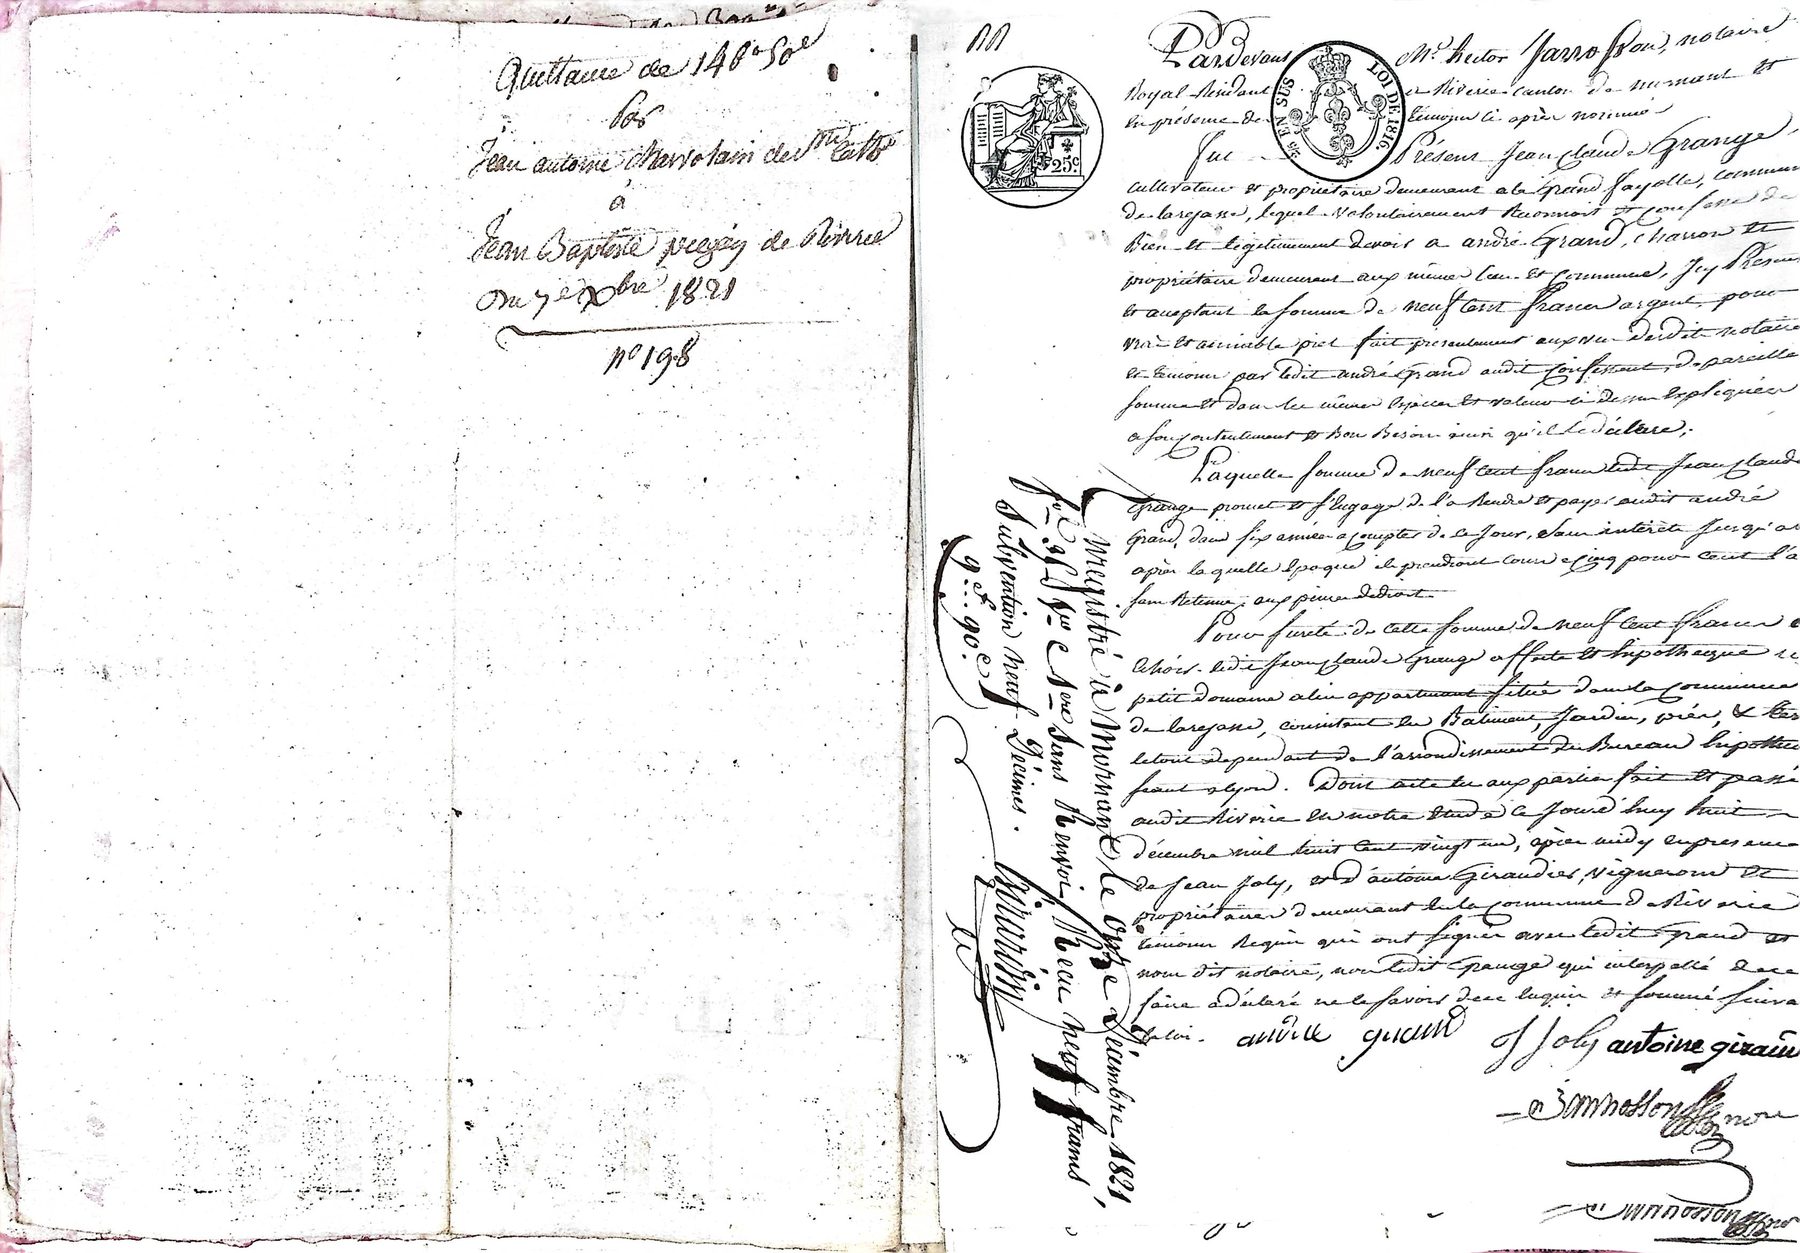 Quittance de 148f 50c
par
Jean antoine charvolain de Ste Catne
à
Jean Baptiste de Riverie
Du 7e Xbre 1821
no 198
Pardevant Me hector Jarrosson, notaire
Royal Résidant a Riverie canton de mornant et
en présence de témoins ci après nommés
fut Présent Jean Claude Grange,
cultivateur et propriétaire demeurant a la Grand fayolle, commune
de larajasse, lequel volontairement Reconnoit et confesse de
Bien et légitimement devoir a andré Grand, charron et
propriétaire demeurant aux même lieu et commune, Icy Présent
et acceptant la somme de neuf cent francs argent, pour
vrai et aimable prêt fait présentement aux vu desdit notaire
et témoins par ledit andré Grand audit confessant, de pareille
somme et dans les mêmes espèces et valeur ci dessus expliquées
a son contentement et Bon Besoin ainsi qu'il le déclare;
Laquelle somme de neuf cent francs ledit Jean Claude
Grange promet et s'engage de la Rendre et payer audit andré
Grand, dans six années a compter de ce jour, sans intérêts jusqu'a
après laquelle époque ils prendront cours a cinq pour cent l'a
sans Retenue, aux peines de droit.
Pour sureté de cette somme de neuf cent francs
ledit Jean Claude Grange affecte et hipothèque
petit domaine a lui appartenant situé dans la commune
de larajasse, consistant en Batiment, Jardin, prés, & ter
le tout dépendant de l'arrondissement du Bureau hipothe
séant a lyon. Dont acte lu aux parties fait et passé
audit Riverie en notre étude ce jourd'huy huit
décembre mil huit cent vingt un, après midy en presence
de Jean Joly, et d'antoine Giraudier, vignerons et
propriétaires demeurant en la commune de Riverie
témoins Requis qui ont signés avec ledit Grand et
nous dit notaire, non ledit Grange qui interpellé de ce
faire a déclaré ne le savoir de ce enquis et sommé suiva
la loi. andre grand J Joly antoine giraud
Jarrosson nore
Jarrosson nore
Enregistré à Mornant, le onze Décembre 1821
fo 95 Vo C 1ere Sans Renvoi. Recu neuf francs,
Subvention neuf Décimes.
9f..90c
25c.
EN SUS
LOI DE 1816